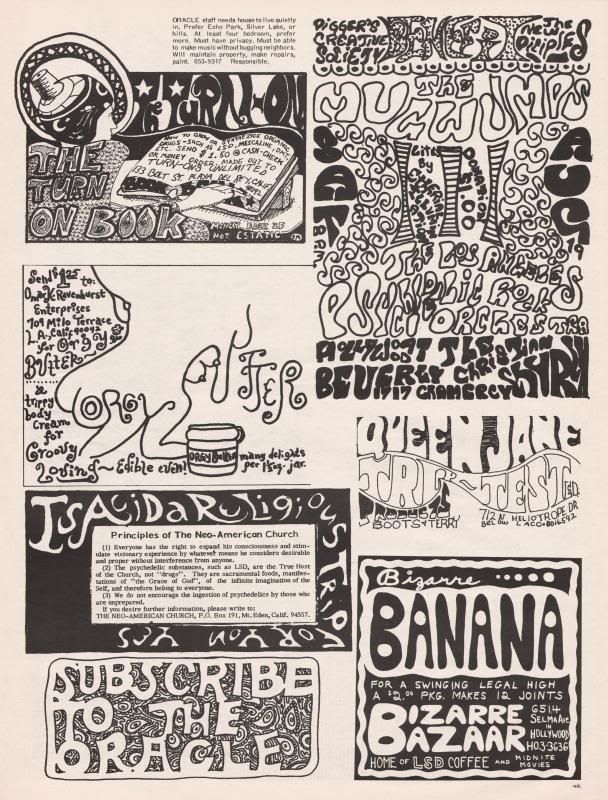 ORACLE staff needs house to live quietly
in. Prefer Echo Park, Silver Lake, or
hills. At least four bedroom, prefer
more. Must have privacy. Must be able
to make music without bugging neighbors.
Will maintain property, make repairs,
paint. 653-9317 Responsible.
THE TURN-ON
HOW TO GROW OR SYNTHESIZE ORGANIC
DRUGS-SUCH AS LSD, MESCALINE, DMT,
ETC. SEND $1.50 @ CASH-CHECK
OR MONEY ORDER. MADE OUT TO
TURN-ONS UNLIMITED
THE
TURN
ON BOOK
NOT STATIC
Send $1.25 to:
Omar K. Ravenhurst
Enterprises
709 Milo Terrace
L.A., Calif. 90042
for Orgy
Butter~
a
trippy
body
Cream
for
Groovy
Loving~Edible even!
ORGY BUTTER
ORGY Butter
many delights
per 1½ oz. jar.
Is Acid a Religious Trip
Principles of The Neo-American Church
(1) Everyone has the right to expand his consciousness and stim-
ulate visionary experience by whatever means he considers desirable
and proper without interference from anyone.
(2) The psychedelic substances, such as LSD, are the True Host
of the Church, not "drugs". They are sacramental foods, manifes-
tations of "the Grace of God", of the infinite imagination of the
Self, and therefore belong to everyone.
(3) We do not encourage the ingestion of psychedelics by those who
are unprepared.
If you desire further information, please write to:
THE NEO-AMERICAN CHURCH, P.O. Box 191, Mt. Eden, Calif. 94557.
SUBSCRIBE
TO THE
ORACLE
DIGGER'S
CREATIVE
SOCIETY
The
New
THE
MUGWUMPS
SAT
AUG
19
8 P.M.
Lites
By
Donation
$1.00
THE LOS ANGELES
PSYCHEDELIC ROCK
ORCHESTRA
BEVERLY CHRISTIAN
1717 GRAMERCY
QUEEN JANE
TRIP-TESTED
PRODUCTS
BOOTS & TERRY
712 N. HELIOTROPE DR
BELOW L.A.CC
Bizarre .....
BANANA
FOR A SWINGING LEGAL HIGH
A $2.00 PKG. MAKES 12 JOINTS
BIZARRE
BAZAAR
6514
SELMA AVE
IN
HOLLYWOOD
HO.3-3636
HOME OF LSD COFFEE AND MIDNITE
MOVIES